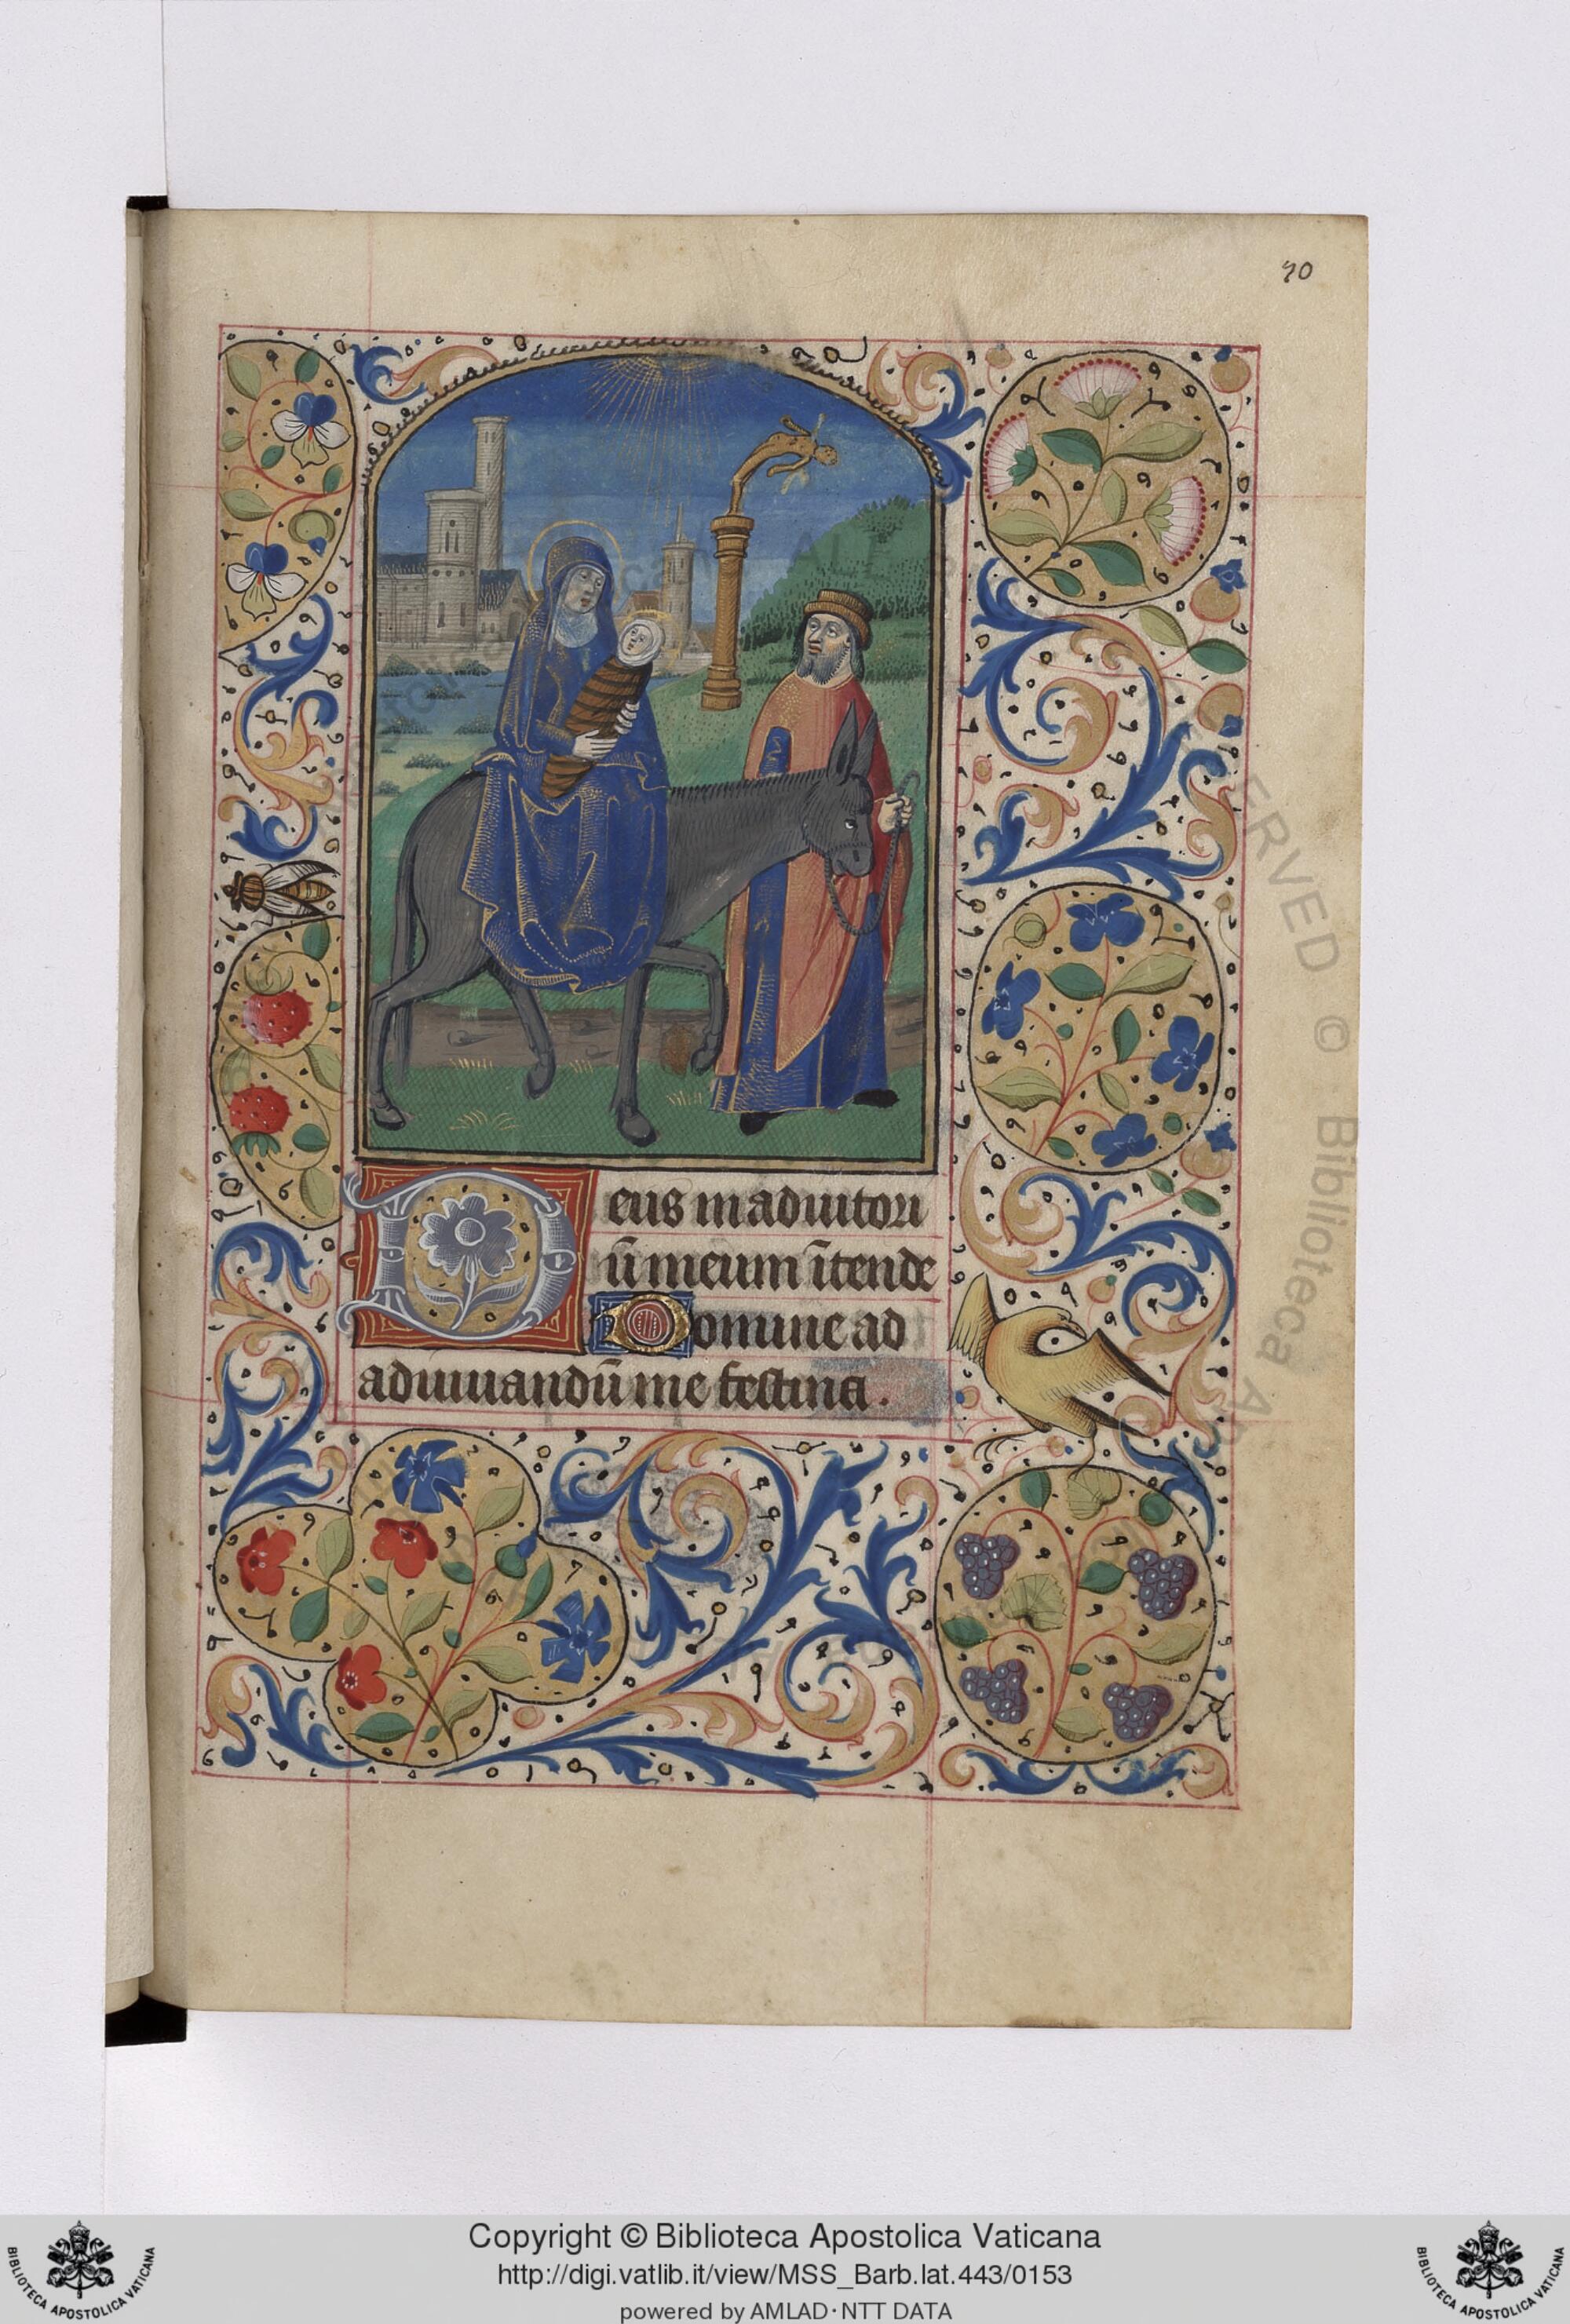 70
Deus in adiutori
ū meum ītende
Domine ad
adiuuandū me festina.
Copyright © Biblioteca Apostolica Vaticana
http://digi.vatlib.it/view/MSS_Barb.lat.443/0153
powered by AMLAD·NTT DATA
BIBLIOTECA APOSTOLICA VATICANA
BIBLIOTECA APOSTOLICA VATICANA